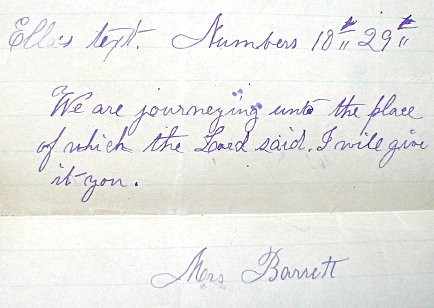 Ella's text. Numbers 10th 29th
We are journeying unto the place
of which the Lord said. I will give
it you.
Mrs Barrett